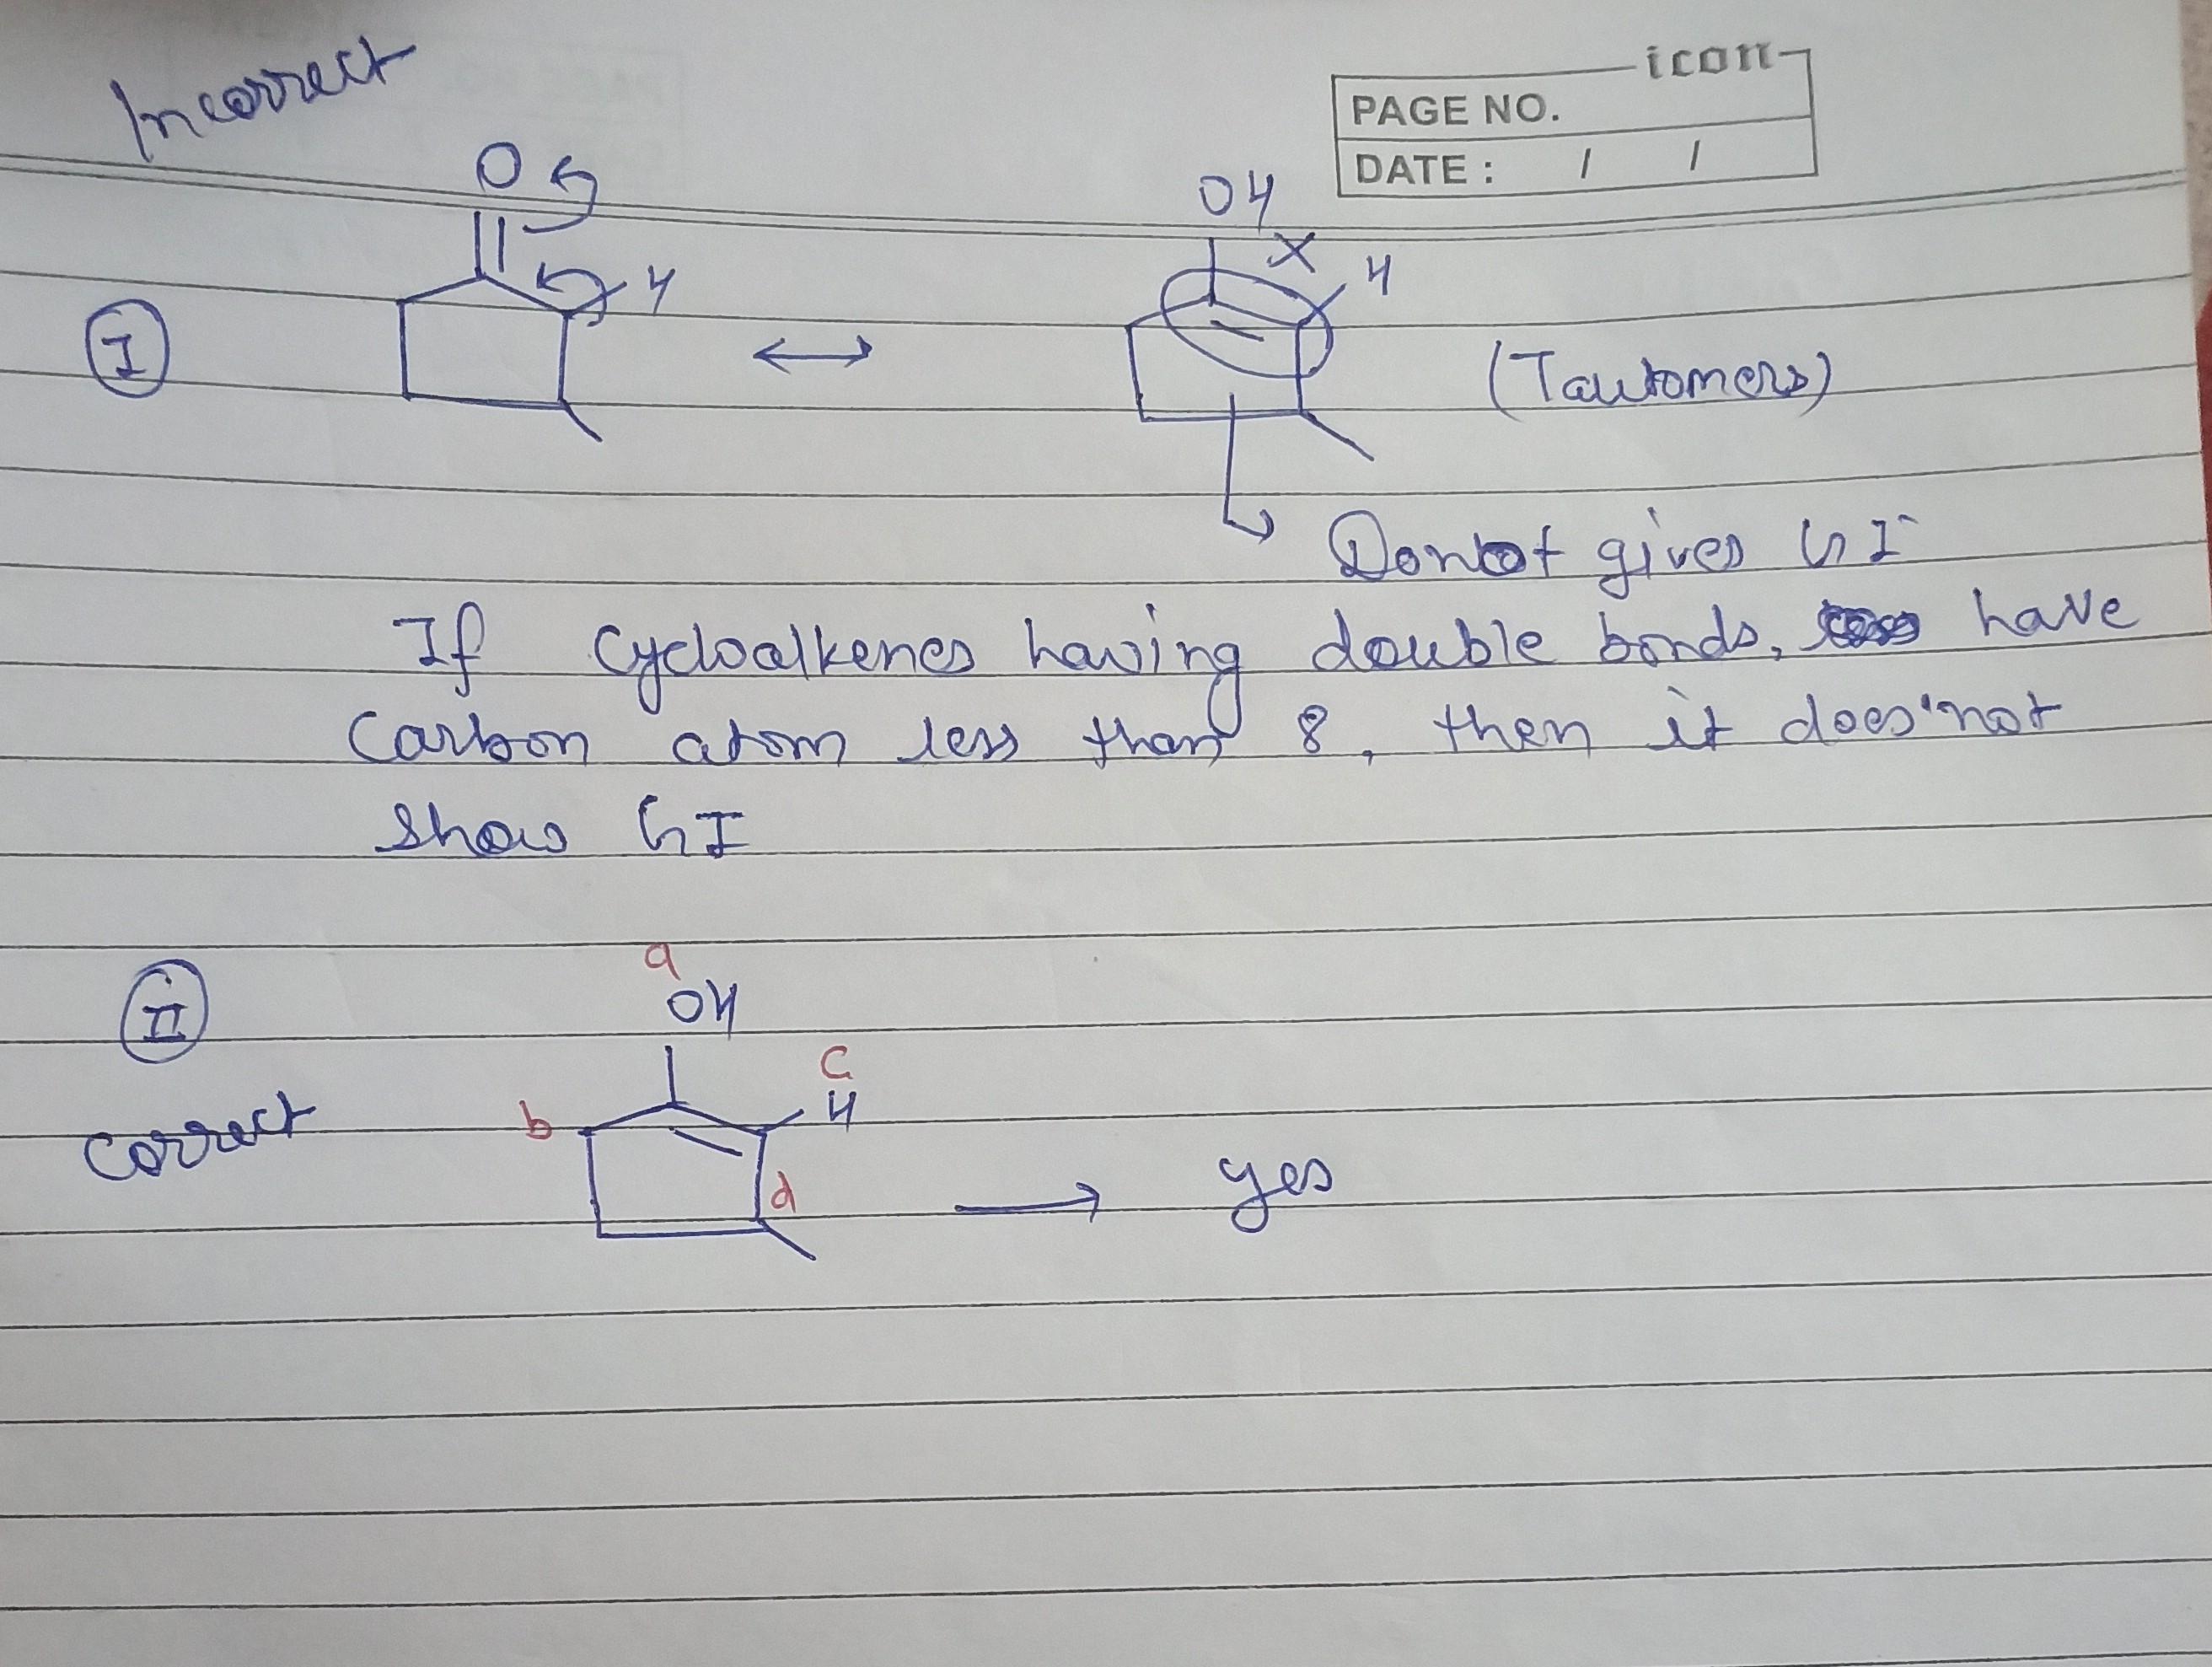 Incorrect
icon
PAGE NO.
DATE : / /
O
H
I
OH
X
H
(Tautomers)
Donot gives GI
If Cycloalkenes having double bonds, have
Carbon atom less than 8, then it does'not
Show GI
II
a
OH
c
H
b
d
Correct
yes